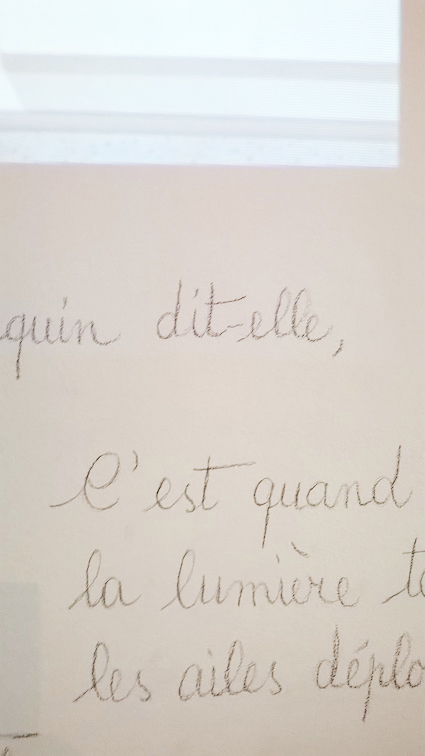 quin dit-elle,
C'est quand
la lumière
les ailes